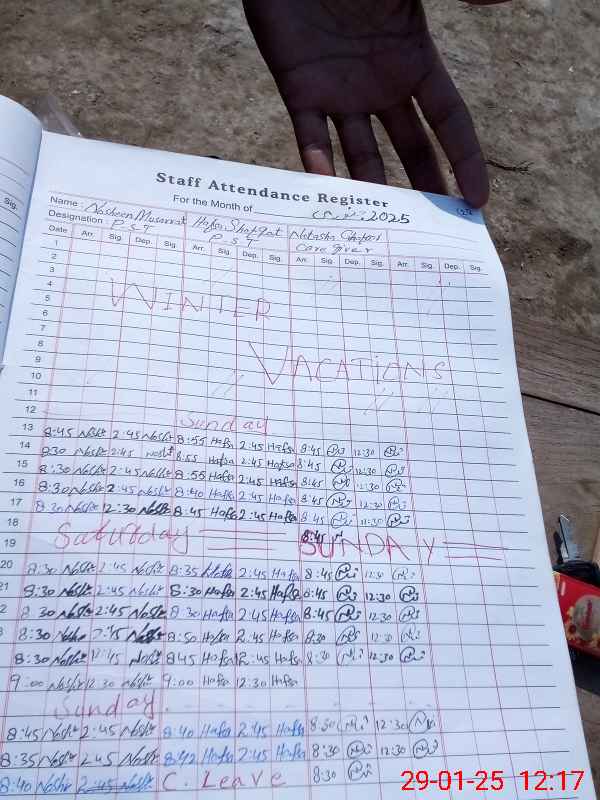 Staff Attendance Register
For the Month of جنوری 2025
Name: Nosheen Musarrat Hafsa Shafqat Natasha
Designation: P.S.T P.S.T Care giver
Date Arr. Sig. Dep. Sig. Arr. Sig. Dep. Sig. Arr. Sig. Dep. Sig. Arr. Sig. Dep. Sig.
Sig.
1
2
3
4
5
WINTER
6
7
8
9
VACATIONS
10
11
12
Sunday
13 8:45 Noshi 2:45 Noshi 8:55 Hafsa 2:45 Hafsa 8:45 12:30
14 8:30 Noshi 2:45 Noshi 8:55 Hafsa 2:45 Hafsa 8:45 12:30
15 8:30 Noshi 2:45 Noshi 8:55 Hafsa 2:45 Hafsa 8:45 12:30
16 8:30 Noshi 2:45 Noshi 8:40 Hafsa 2:45 Hafsa 8:45 12:30
17 8:30 Noshi 12:30 Noshi 8:45 Hafsa 2:45 Hafsa 8:45
18
Saturday
19 8:45 SUNDAY
20 8:30 Noshi 2:45 Noshi 8:35 Hafsa 2:45 Hafsa 8:45 12:30
21 8:30 Noshi 2:45 Noshi 8:30 Hafsa 2:45 Hafsa 8:45 12:30
2 8:30 Noshi 2:45 Noshi 8:30 Hafsa 2:45 Hafsa 8:45 12:30
8:30 Noshi 2:45 Noshi 8:50 Hafsa 2:45 Hafsa 8:30 12:30
8:30 Noshi 12:45 Noshi 8:45 Hafsa 12:45 Hafsa 8:30 12:30
9:00 Noshi 12:30 Noshi 9:00 Hafsa 12:30 Hafsa
Sunday
8:45 Noshi 2:45 Noshi 8:40 Hafsa 2:45 Hafsa 8:30 12:30
8:35 Noshi 2:45 Noshi 8:42 Hafsa 2:45 Hafsa 8:30 12:30
8:40 Noshi 2:45 Noshi C. Leave 8:30
29-01-25 12:17